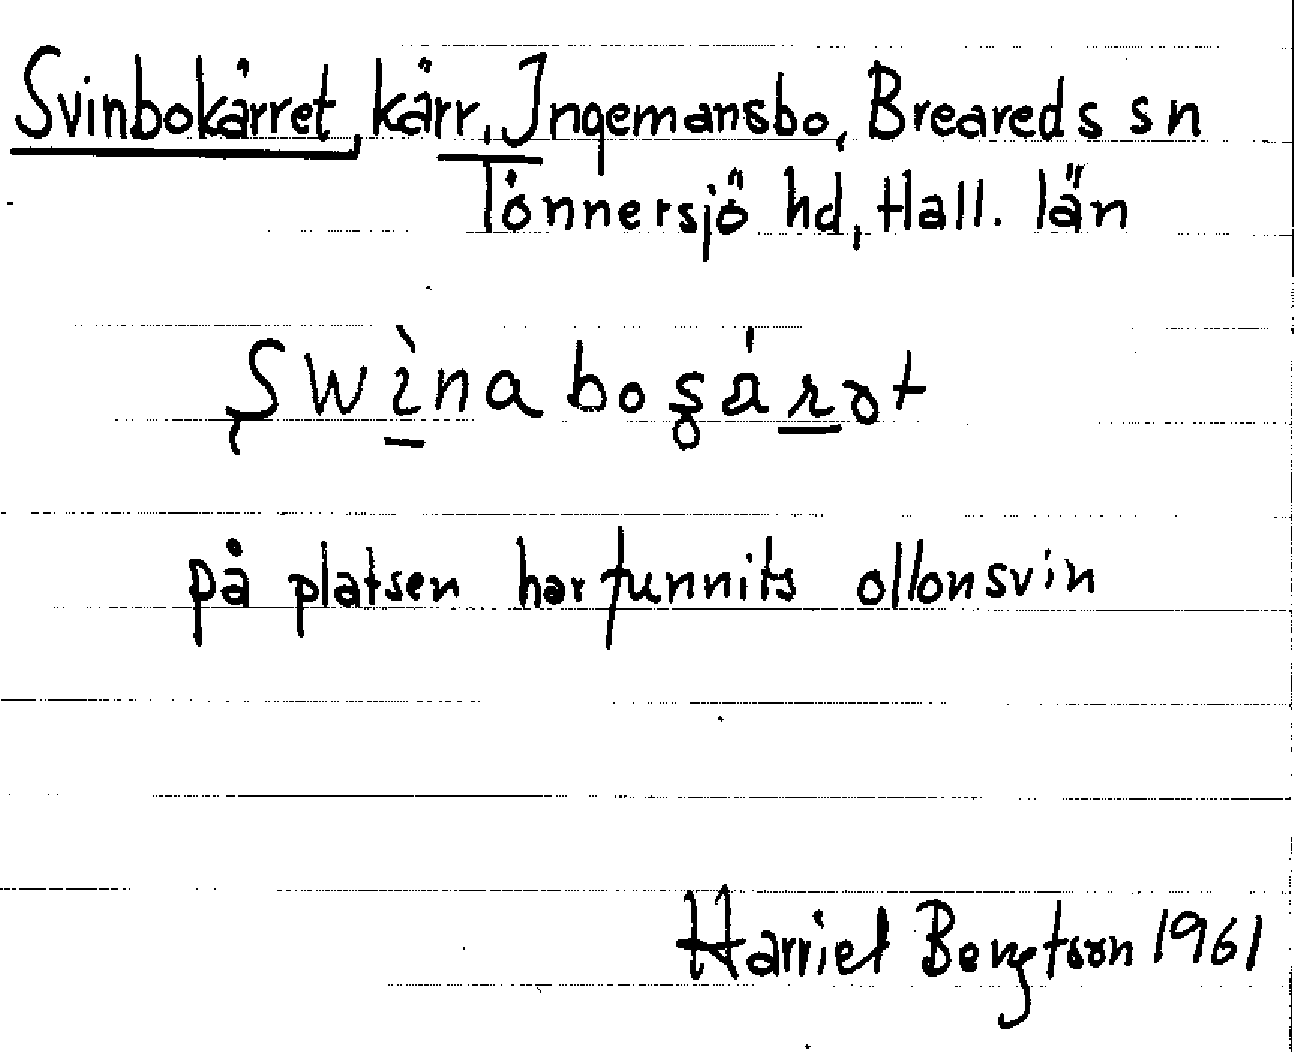 Svinbokärret, kärr, Ingemansbo, Breareds sn
Tönnersjö hd, Hall. län
på platsen har funnits ollonsvin
Harriet Bengtson 1961